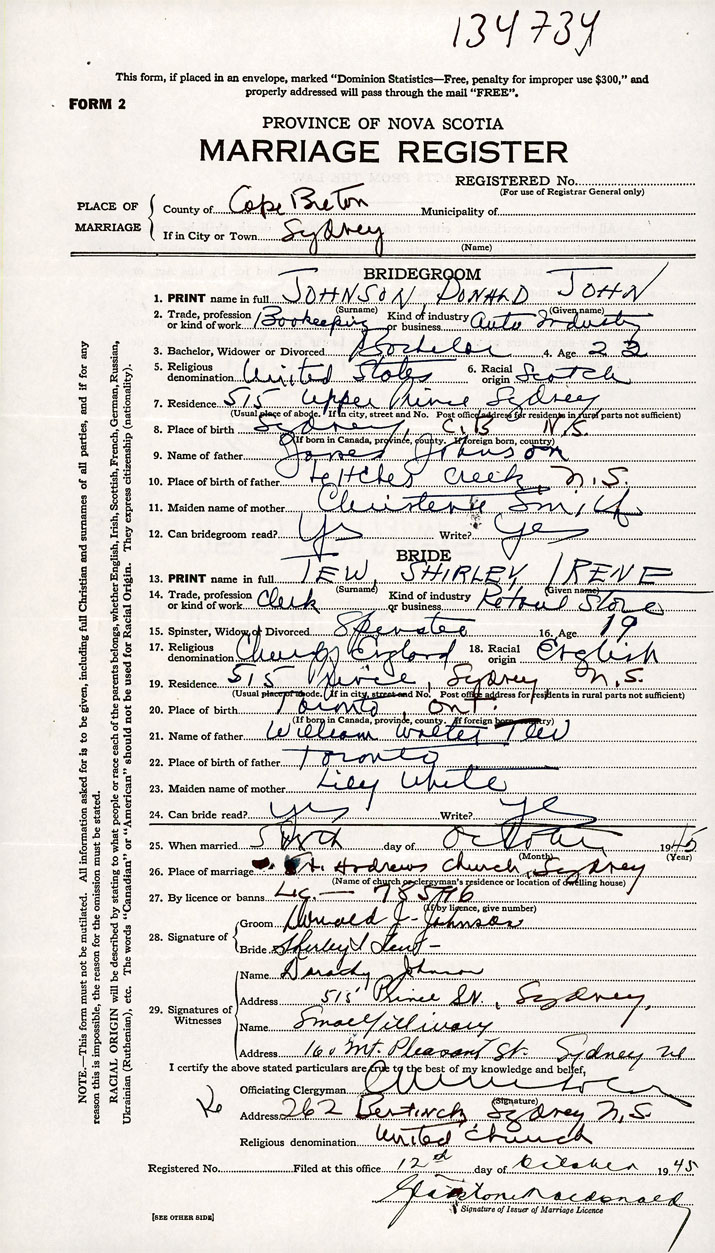 134734
This form, if placed in an envelope, marked "Dominion Statistics—Free, penalty for improper use $300," and
properly addressed will pass through the mail "FREE".
FORM 2
PROVINCE OF NOVA SCOTIA
MARRIAGE REGISTER
REGISTERED No.
(For use of Registrar General only)
PLACE OF MARRIAGE
County of Cape Breton Municipality of
If in City or Town Sydney
(Name)
BRIDEGROOM
1. PRINT name in full JOHNSON, DONALD JOHN
(Surname) (Given name)
2. Trade, profession or kind of work Bookkeeping Kind of industry or business Auto Industry
3. Bachelor, Widower or Divorced Bachelor 4. Age 23
5. Religious denomination United States 6. Racial origin Scotch
7. Residence 515 Upper Prince Sydney
(Usual place of abode. If in city, street and No. Post office address for residents in rural parts not sufficient)
8. Place of birth Sydney, C.B. N.S.
(If born in Canada, province, county. If foreign born, country)
9. Name of father James Johnson
10. Place of birth of father Leitches Creek, N.S.
11. Maiden name of mother Christene Smith
12. Can bridegroom read? Yes Write? Yes
BRIDE
13. PRINT name in full TEW, SHIRLEY, IRENE
(Surname) (Given name)
14. Trade, profession or kind of work Clerk Kind of industry or business Retail Store
15. Spinster, Widow or Divorced Spinster 16. Age 19
17. Religious denomination Church England 18. Racial origin English
19. Residence 515 Prince, Sydney N.S.
(Usual place of abode. If in city, street and No. Post office address for residents in rural parts not sufficient)
20. Place of birth Toronto, Ont.
(If born in Canada, province, county. If foreign born, country)
21. Name of father William Walter Tew
22. Place of birth of father Toronto
23. Maiden name of mother Lily White
24. Can bride read? Yes Write? Yes
25. When married day of October 1945
(Month) (Year)
26. Place of marriage St. Andrews Church, Sydney
(Name of church or clergyman's residence or location of dwelling house)
27. By licence or banns Lic.—
(If by licence, give number)
28. Signature of
Groom Donald J. Johnson
Bride Shirley I
29. Signatures of Witnesses
Name Dorothy Johnson
Address 515 Prince St., Sydney,
Name
Address 160 Mt. Pleasant St. Sydney
I certify the above stated particulars are true to the best of my knowledge and belief,
Officiating Clergyman
(Signature)
Address 262 Sydney N.S.
Religious denomination United Church
Registered No. Filed at this office 12th day of October 1945
Macdonald
Signature of Issuer of Marriage Licence
[SEE OTHER SIDE]
NOTE.—This form must not be mutilated. All information asked for is to be given, including full Christian and surnames of all parties, and if for any
reason this is impossible, the reason for the omission must be stated.
RACIAL ORIGIN will be described by stating to what people or race each of the parents belongs, whether English, Irish, Scottish, French, German, Russian,
Ukrainian (Ruthenian), etc. The words "Canadian" or "American" should not be used for Racial Origin. They express citizenship (nationality).